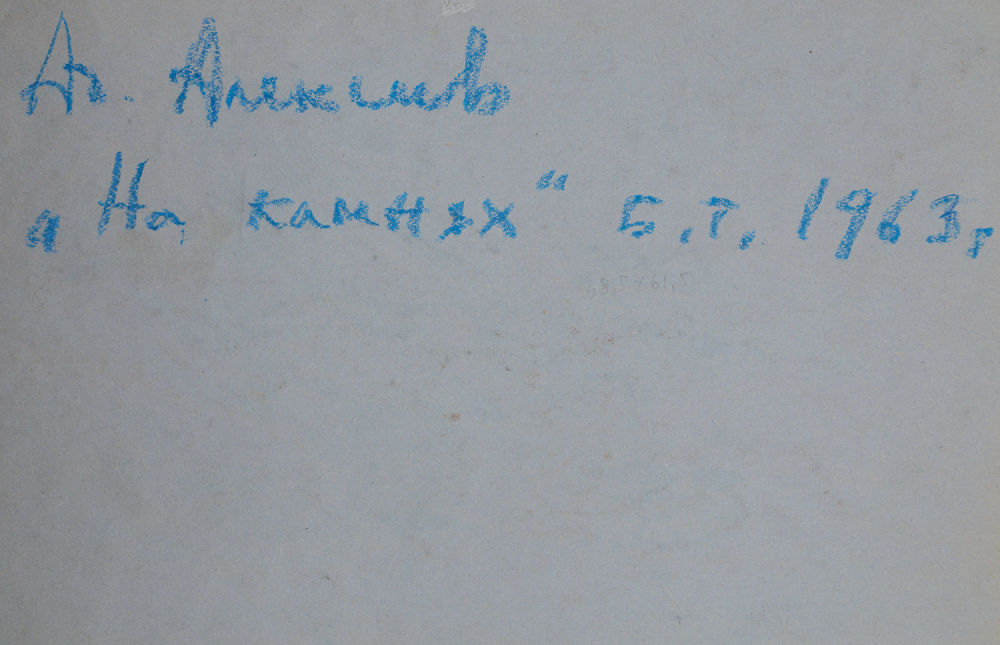 Ад. Алексеев
„На камнях“ Б.т. 1963г
38,5x61,5